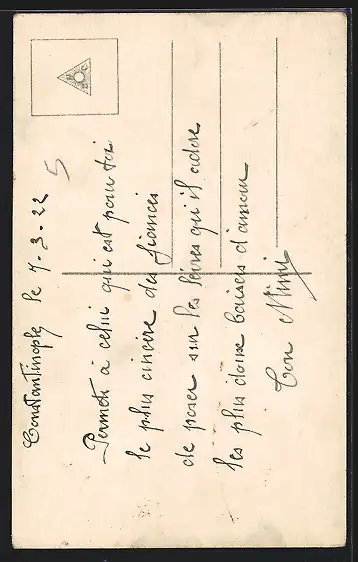 Constantinople le 7-3-22
5
Permets à celui qui est pour toi
le plus cincère des fiancés
de poser sur les lèvres qu'il adore
les plus doux baisers d'amour
Ton Mimi